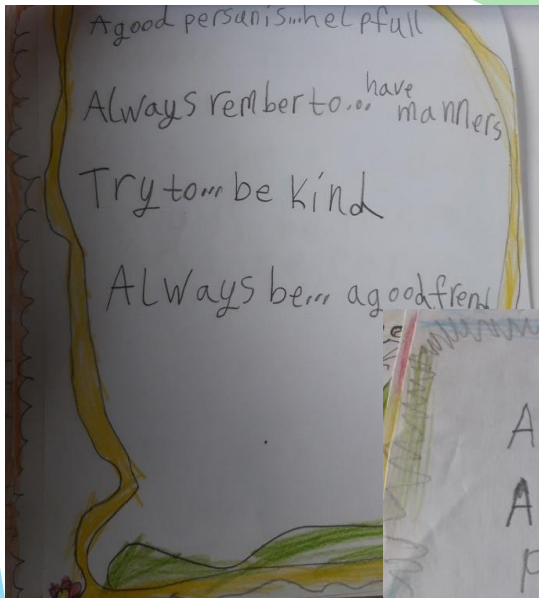 A good persun is... helpfull
Always rember to... have manners
Try to... be kind
Always be... a good frend
A
A